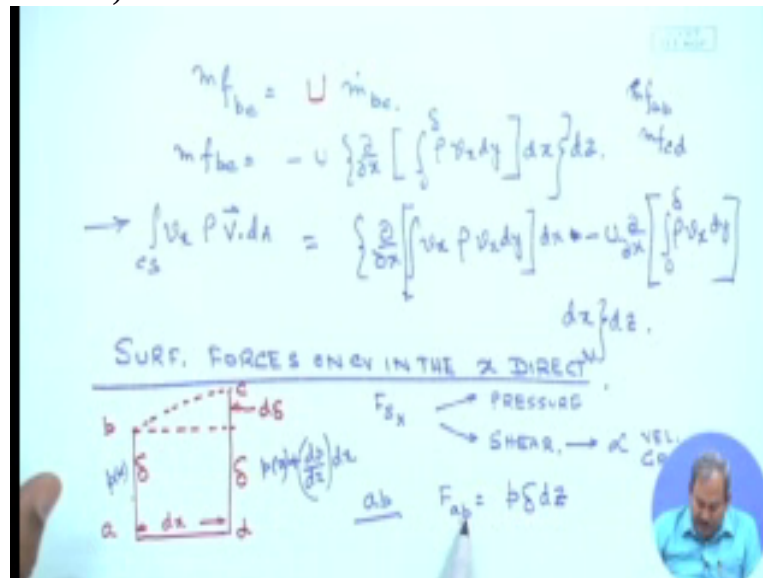 mf_bc = U ṁ_bc.
mf_ab
mf_cd
mf_bc = - U {∂/∂x [∫_0^δ ρ v_x dy] dx} dz.
→ ∫_CS v_x ρ V⃗.dA = {∂/∂x [∫ v_x ρ v_x dy] dx - U ∂/∂x [∫_0^δ ρ v_x dy]
dx} dz.
SURF. FORCES ON CV IN THE x DIRECTN.
F_Sx → PRESSURE
→ SHEAR. → ∝ VEL.
b c dδ
p(x) δ δ p(x)+(dp/dx)dx
a dx d
ab F_ab = pδdz